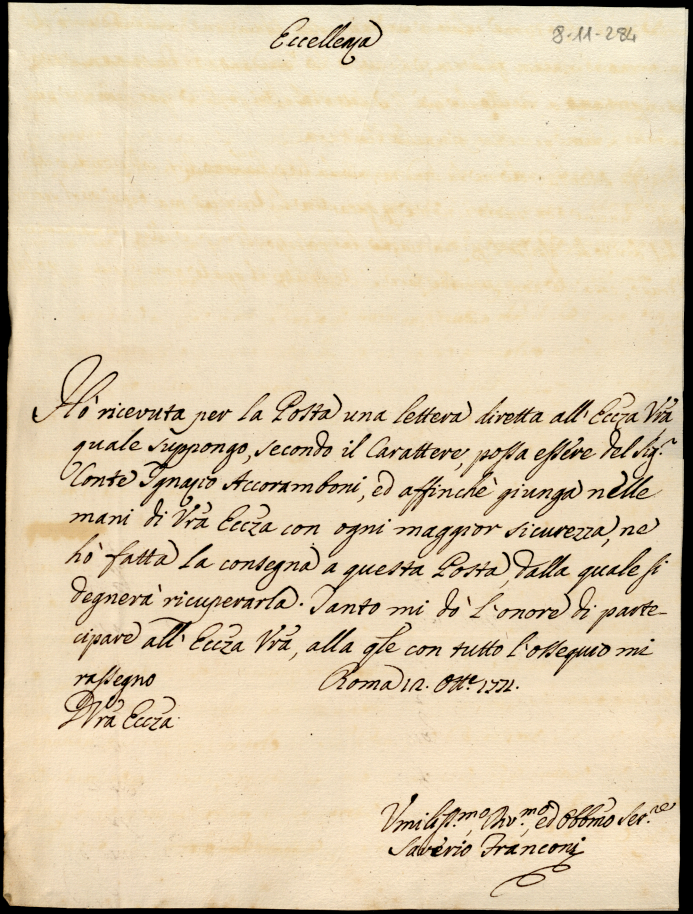 8-11-284
Eccellenza
Hò ricevuta per la Posta una lettera diretta all' Eccza Vrã
quale suppongo, secondo il Carattere, possa essere del Sig.r
Conte Ignazio Accoramboni, ed affinchè giunga nelle
mani di Vrã Eccza con ogni maggior sicurezza, ne
hò fatta la consegna a questa Posta, dalla quale si
degnerà ricuperarla. Tanto mi dò l'onore di parte-
cipare all' Eccza Vrã, alla qle con tutto l'ossequio mi
rassegno Roma 12. Ott.e 1771.
D Vrã Eccza
Umiliss.mo, Div.mo, ed Obbmo Ser.re
Saverio Franconi